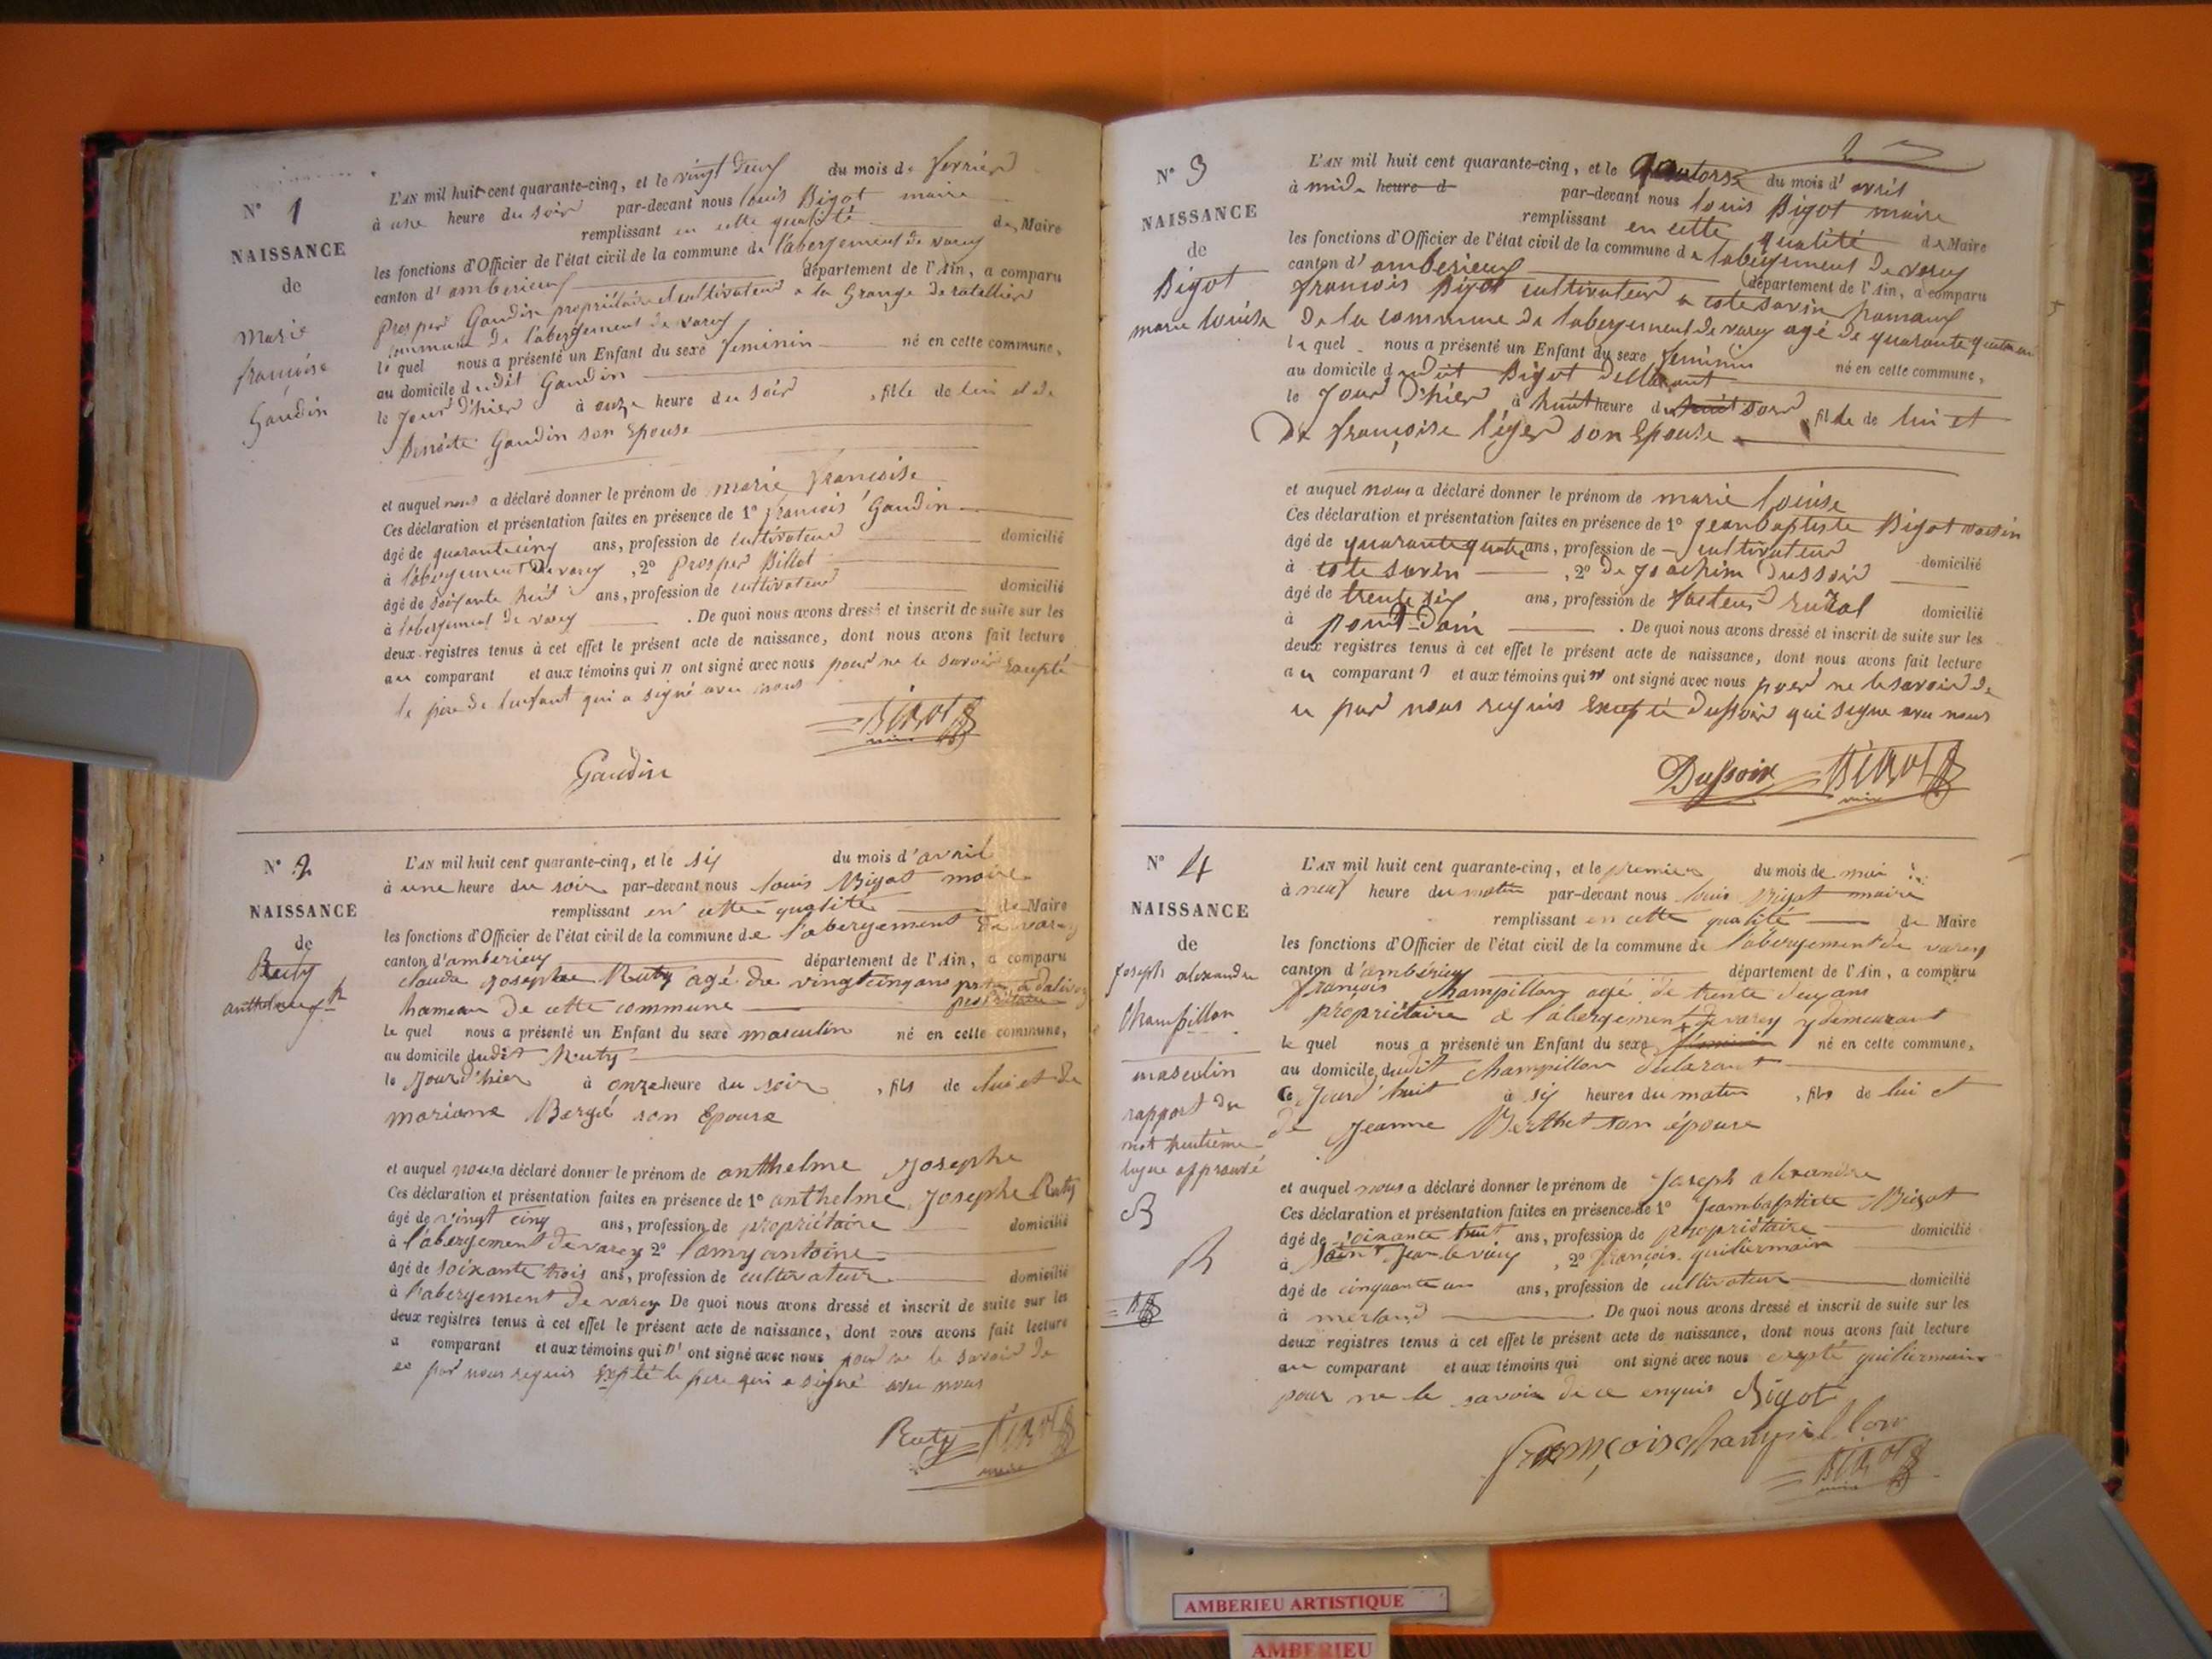 N° 1
NAISSANCE
de
marie
françoise
Gaudin
L'AN mil huit cent quarante-cinq, et le vingt deux du mois de fevrier
à une heure du soir par-devant nous louis Bigot maire
remplissant en cette qualité de Maire
les fonctions d'Officier de l'état civil de la commune de l'abergement de varey
canton d'amberieux département de l'Ain, a comparu
prosper Gaudin propriétaire et cultivateur a la Grange de ratellier
commune de l'abergement de varey
le quel nous a présenté un Enfant du sexe feminin né en cette commune,
au domicile dudit Gaudin
le Jour d'hier à onze heure du soir , fille de lui et de
Benoite Gaudin son Epouse
et auquel nous a déclaré donner le prénom de marie francoise
Ces déclaration et présentation faites en présence de 1° francois Gaudin
âgé de quarante cinq ans, profession de cultivateur domicilié
à l'abergement de varey , 2° prosper Billot
âgé de soixante huit ans, profession de cultivateur domicilié
à l'abergement de varey . De quoi nous avons dressé et inscrit de suite sur les
deux registres tenus à cet effet le présent acte de naissance, dont nous avons fait lecture
au comparant et aux témoins qui n ont signé avec nous pour ne le savoir Excepté
le père de l'enfant qui a signé avec nous
BIGOT
Gaudin
N° 2
NAISSANCE
de
Ruty
anthelme jph
L'AN mil huit cent quarante-cinq, et le six du mois d'avril
à une heure du soir par-devant nous louis Bigot maire
remplissant en cette qualité de Maire
les fonctions d'Officier de l'état civil de la commune de l'abergement de varey
canton d'amberieux département de l'Ain, a comparu
claude josephe Ruty agé de vingt cinq ans
hameau de cette commune
le quel nous a présenté un Enfant du sexe masculin né en cette commune,
au domicile dudit Ruty
le Jour d'hier à onze heure du soir , fils de lui et de
mariane Bergé son Epouse
et auquel nous a déclaré donner le prénom de anthelme Josephe
Ces déclaration et présentation faites en présence de 1° anthelme Josephe Ruty
âgé de vingt cinq ans, profession de propriétaire domicilié
à l'abergement de varey 2° lamy antoine
âgé de soixante trois ans, profession de cultivateur domicilié
à l'abergement de varey De quoi nous avons dressé et inscrit de suite sur les
deux registres tenus à cet effet le présent acte de naissance, dont nous avons fait lecture
a comparant et aux témoins qui n' ont signé avec nous pour ne le savoir de
ce par nous requis Expté le pere qui a signé avec nous
Ruty BIGOT
maire
2
N° 3
NAISSANCE
de
Bigot
marie louise
L'AN mil huit cent quarante-cinq, et le quatorse du mois d'avril
à midi heure d par-devant nous louis Bigot maire
remplissant en cette qualité de Maire
les fonctions d'Officier de l'état civil de la commune de l'abergement de varey
canton d'amberieux département de l'Ain, a comparu
francois Bigot cultivateur a cote savin hamaux
De la commune de l'abergement de varey agé de quarante quatre ans
le quel nous a présenté un Enfant du sexe feminin né en cette commune,
au domicile dudit Bigot Déclarant
le Jour d'hier à huit heure du soir fille de lui et
De françoise léger son Epouse
et auquel nous a déclaré donner le prénom de marie louise
Ces déclaration et présentation faites en présence de 1° Jean Baptiste Bigot voisin
âgé de quarante quatre ans, profession de cultivateur
à cote savin , 2° De Joachim Dussoir domicilié
âgé de trente six ans, profession de facteur rural domicilié
à pont d'ain . De quoi nous avons dressé et inscrit de suite sur les
deux registres tenus à cet effet le présent acte de naissance, dont nous avons fait lecture
au comparant et aux témoins qui n' ont signé avec nous pour ne le savoir de
ce par nous requis Excepté Dussoir qui signe avec nous
Dussoir BIGOT
maire
N° 4
NAISSANCE
de
joseph alexandre
Champillon
masculin
rapport du
mot huitième
ligne approuvé
B
L'AN mil huit cent quarante-cinq, et le premier du mois de mai
à neuf heure du matin par-devant nous louis Bigot maire
remplissant en cette qualité de Maire
les fonctions d'Officier de l'état civil de la commune de l'abergement de varey
canton d'ambérieux département de l'Ain, a comparu
françois Champillon agé de trente deux ans
propriétaire a l'abergement de varey y demeurant
le quel nous a présenté un Enfant du sexe né en cette commune,
au domicile dudit Champillon déclarant
Ce Jourd'huit à six heures du matin , fils de lui et
de Jeanne Berthet son épouse
et auquel nous a déclaré donner le prénom de Joseph alexandre
Ces déclaration et présentation faites en présence de 1° Jeambaptiste Bigot
âgé de soixante huit ans, profession de propriétaire domicilié
à Saint Jean le vieux , 2° françois guilliermain
âgé de cinquante un ans, profession de cultivateur domicilié
à merland De quoi nous avons dressé et inscrit de suite sur les
deux registres tenus à cet effet le présent acte de naissance, dont nous avons fait lecture
au comparant et aux témoins qui ont signé avec nous expté guilliermain
pour ne le savoir de ce enquis Bigot
françois champillon
BIGOT
maire
AMBERIEU ARTISTIQUE
AMBERIEU